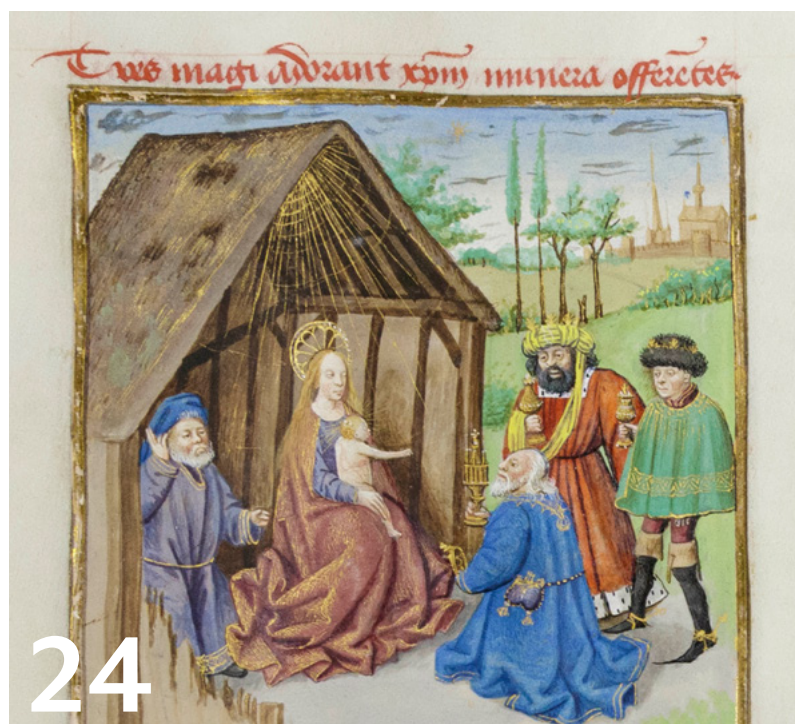 Tres magi adorant xpm̄ munera offerētes
24